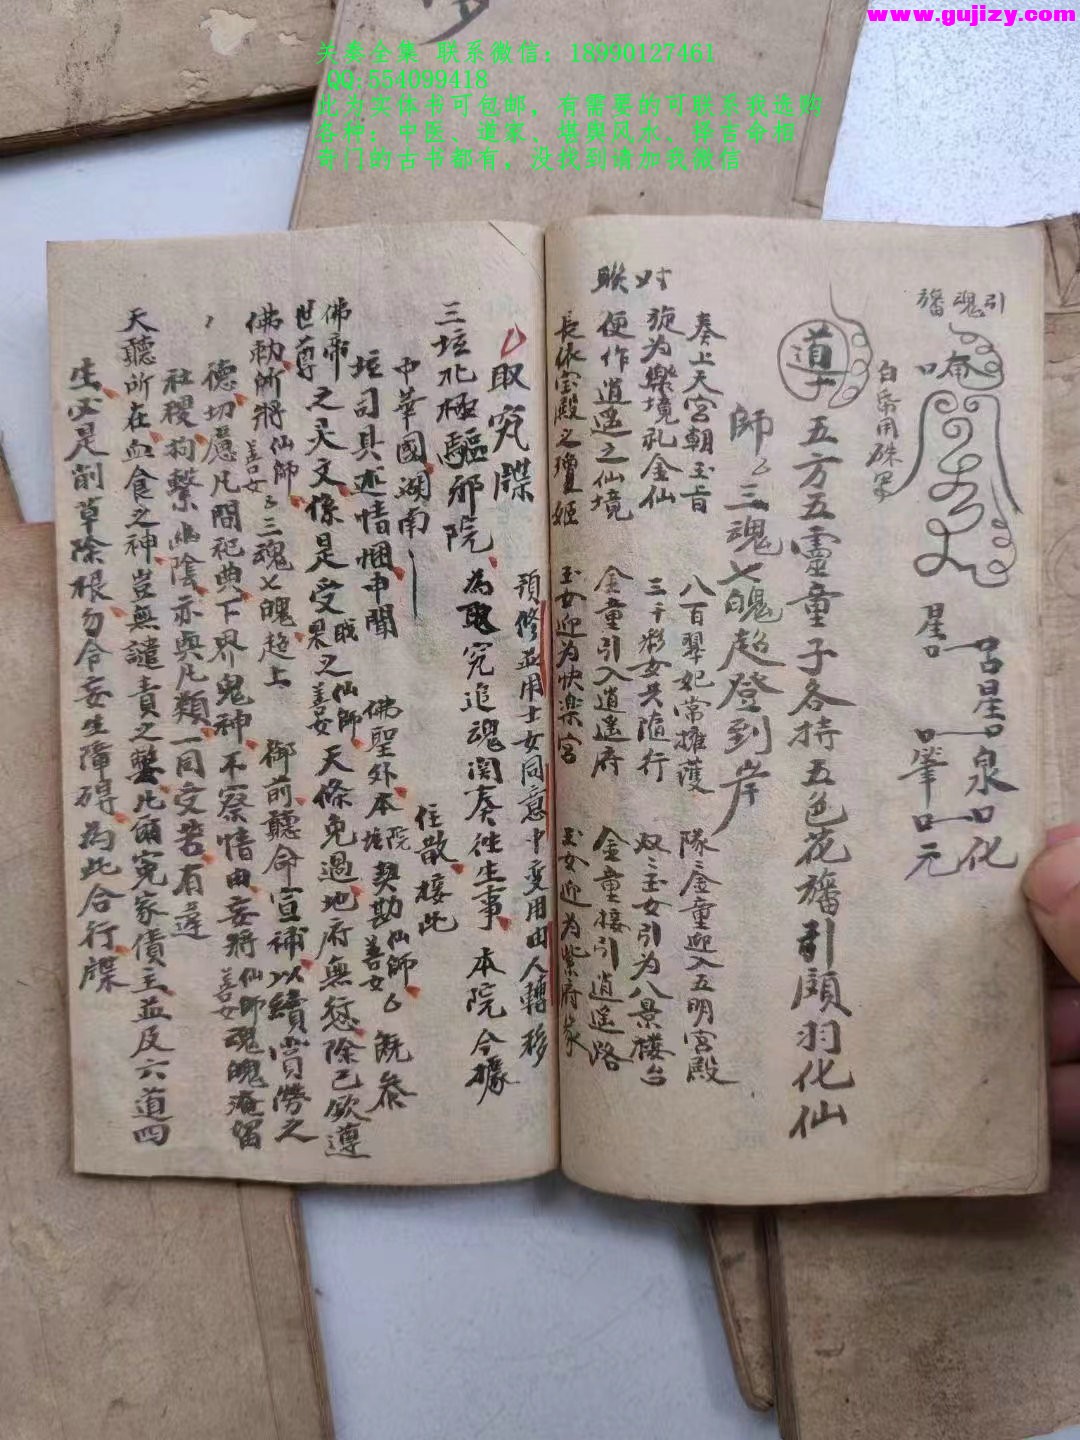 www.gujizy.com
关奏全集 联系微信：18990127461
QQ:554099418
此为实体书可包邮，有需要的可联系我选购
各种：中医、道家、堪舆风水、择吉命相
奇门的古书都有，没找到请加我微信
引魂旛
唵
白帛用硃
星
星 泉 化
肇 元
導 五方五靈童子各持五色花旛引頭羽化仙
師 三魂七魄超登到岸
对联
奏上天宮朝玉旨 八百翠妃常擁護 隊二金童迎入五明宮殿
旋为樂境礼金仙 三千彩女共隨行 双二玉女引为八景楼台
便作逍遥之仙境 金童引入逍遥府 金童接引逍遥路
長依宝殿之瓊姬 玉女迎为快楽宮 玉女迎为紫府家
取究牒 預修並用士女同意中变用由人轉移
三坛北極驅邪院 为 究追魂関奏往生事 本院今據
中華國湖南 住散接此
坛司具述情悃申聞 佛聖外本院坛契勘仙師善女 既叅
佛帝世尊之灵文 條是受戒果之仙師善女 天條免過地府無愆除已欽遵
佛勅所將仙師善女 三魂七魄超上 御前聽命宣補以續賞勞之
德切慮凡間祀典下界鬼神不察情由妄將仙師善女魂魄淹留
社稷拘繫幽陰亦與凡類一同受苦有違
天聽所在血食之神豈無譴責之 凡爾冤家債主並及六道四
生 是削草除根勿令妄生障碍为此合行牒